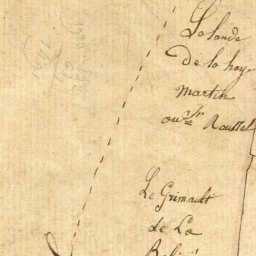 La lande
de la hay
martin
ou Sr Roussel
Le Grimault
de La